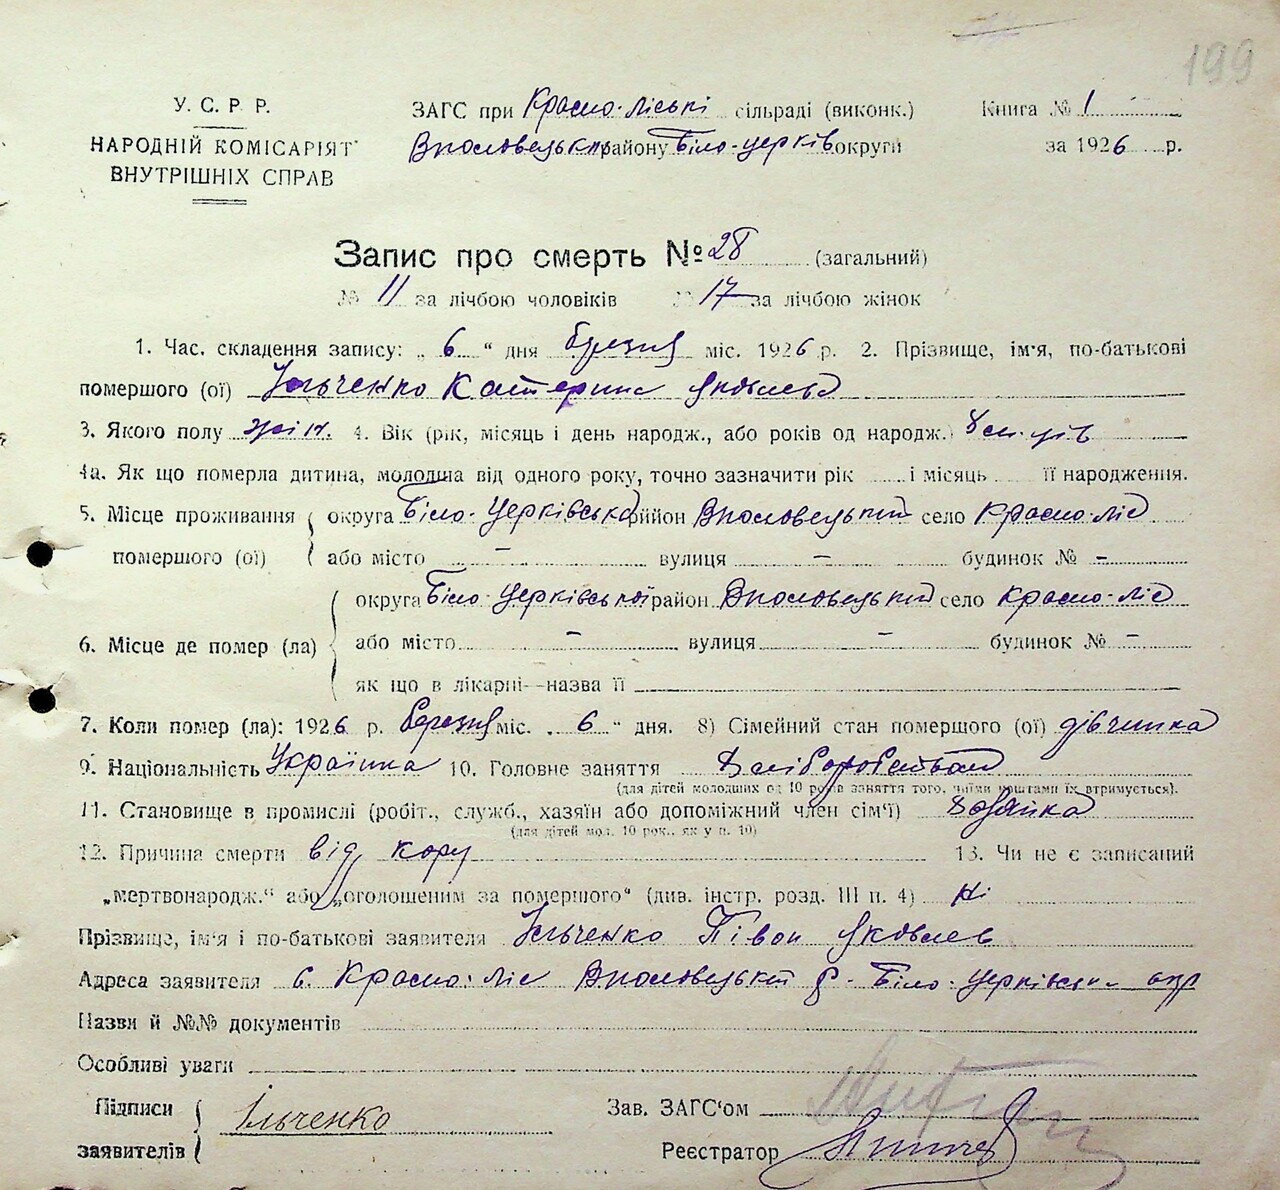 199
У. С. Р. Р.
НАРОДНІЙ КОМІСАРІЯТ
ВНУТРІШНІХ СПРАВ
ЗАГС при Красно-ліські сільраді (виконк.)
району Біло-церків округи
Книга № 1
за 1926 р.
Запис про смерть № 28 (загальний)
№ 11 за лічбою чоловіків № 17 за лічбою жінок
1. Час. складення запису: „ 6 “ дня березня міс. 1926 р. 2. Прізвище, ім'я, по-батькові
помершого (ої) Ільченко Катерина Яковлева
3. Якого полу жін. 4. Вік (рік, місяць і день народж., або років од народж.)
4а. Як що померла дитина, молодша від одного року, точно зазначити рік і місяць її народження.
5. Місце проживання помершого (ої)
округа Біло-Церківська район село Красно-ліс
або місто - вулиця - будинок № -
6. Місце де помер (ла)
округа Біло-Церківської район село Красно-ліс
або місто - вулиця - будинок № -
як що в лікарні--назва її
7. Коли помер (ла): 1926 р. березня міс. „ 6 “ дня. 8) Сімейний стан помершого (ої) дівчинка
9. Національність Українка 10. Головне заняття
(для дітей молодших од 10 років заняття того, чиїми коштами їх втримується).
11. Становище в промислі (робіт., служб., хазяїн або допоміжний член сім'ї) хазяйка
(для дітей мол. 10 рок., як у п. 10)
12. Причина смерти від кору 13. Чи не є записаний
„мертвонародж.“ або „оголошеним за помершого“ (див. інстр. розд. III п. 4) ні
Прізвище, ім'я і по-батькові заявителя Ільченко Яковлев
Адреса заявителя с. Красно-ліс р. Біло-церківськ окр
Назви й №№ документів
Особливі уваги
Підписи заявителів
Ільченко
Зав. ЗАГС'ом
Реєстратор